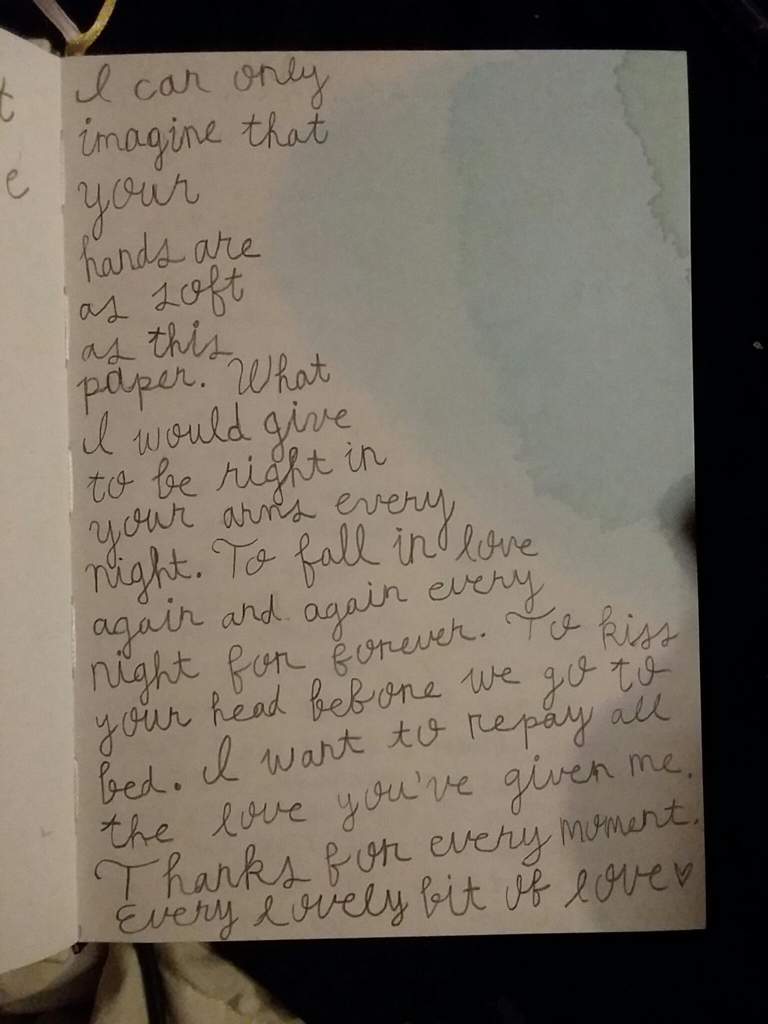 I can only
imagine that
your
hands are
as soft
as this
paper. What
I would give
to be right in
your arms every
night. To fall in love
again and again every
night for forever. To kiss
your head before we go to
bed. I want to repay all
the love you've given me.
Thanks for every moment.
Every lovely bit of love♥